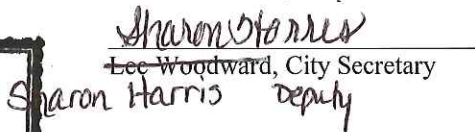 Sharon Harris
Lee Woodward, City Secretary
Sharon Harris Deputy